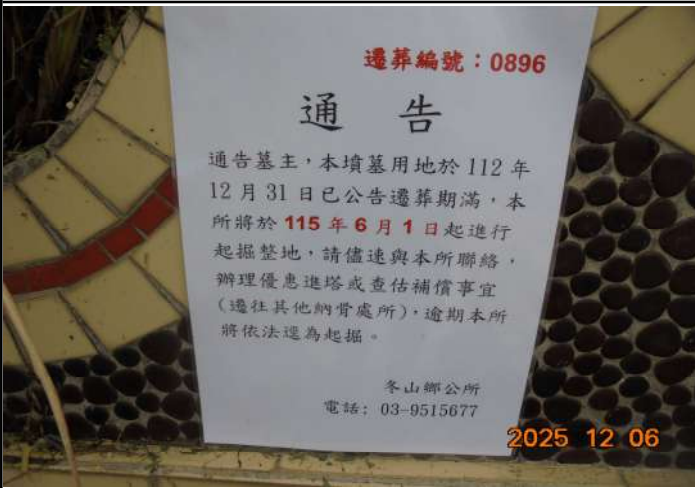 遷葬編號：0896
通告
通告墓主，本墳墓用地於 112 年
12 月 31 日已公告遷葬期滿，本
所將於 115 年 6 月 1 日起進行
起掘整地，請儘速與本所聯絡，
辦理優惠進塔或查估補償事宜
(遷往其他納骨處所)，逾期本所
將依法逕為起掘。
冬山鄉公所
電話: 03-9515677
2025 12 06